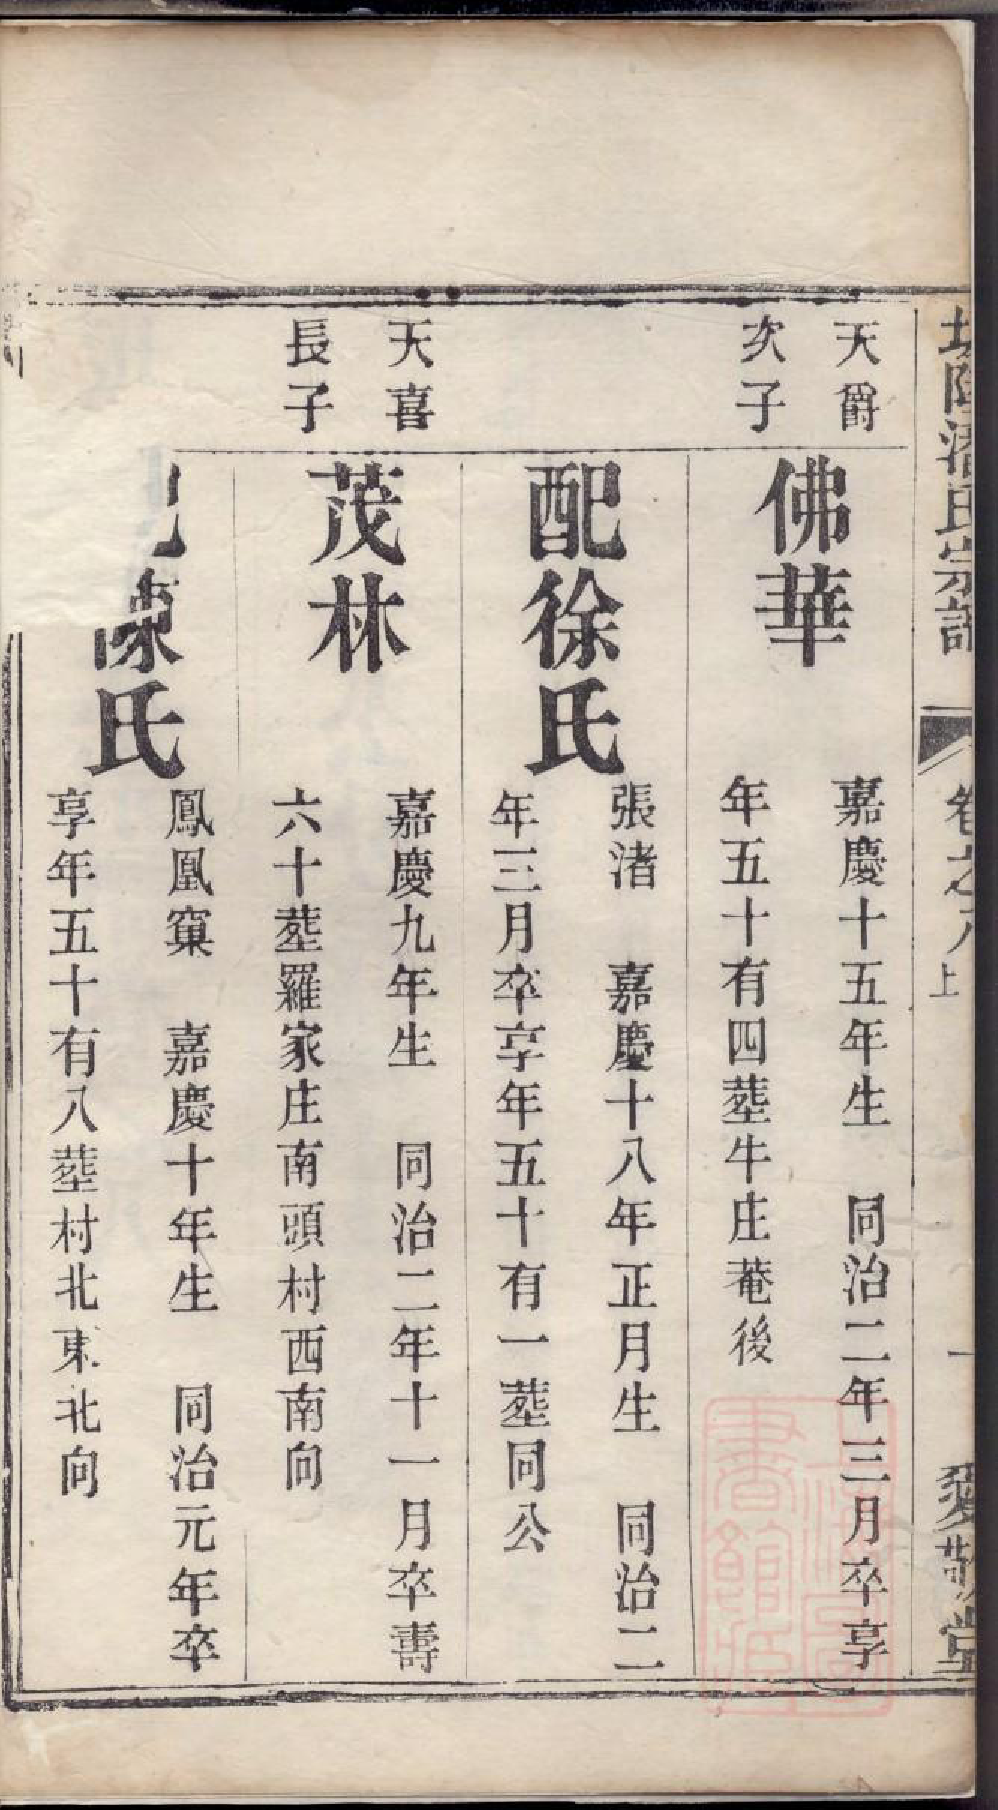 潘氏宗譜
卷之八上
一
愛敬堂
天爵
次子
佛華
嘉慶十五年生 同治二年三月卒享
年五十有四塟牛庄菴後
配徐氏
張渚 嘉慶十八年正月生 同治二
年三月卒享年五十有一塟同公
天喜
長子
茂林
嘉慶九年生 同治二年十一月卒壽
六十塟羅家庄南頭村西南向
配陳氏
鳳凰窠 嘉慶十年生 同治元年卒
享年五十有八塟村北東北向